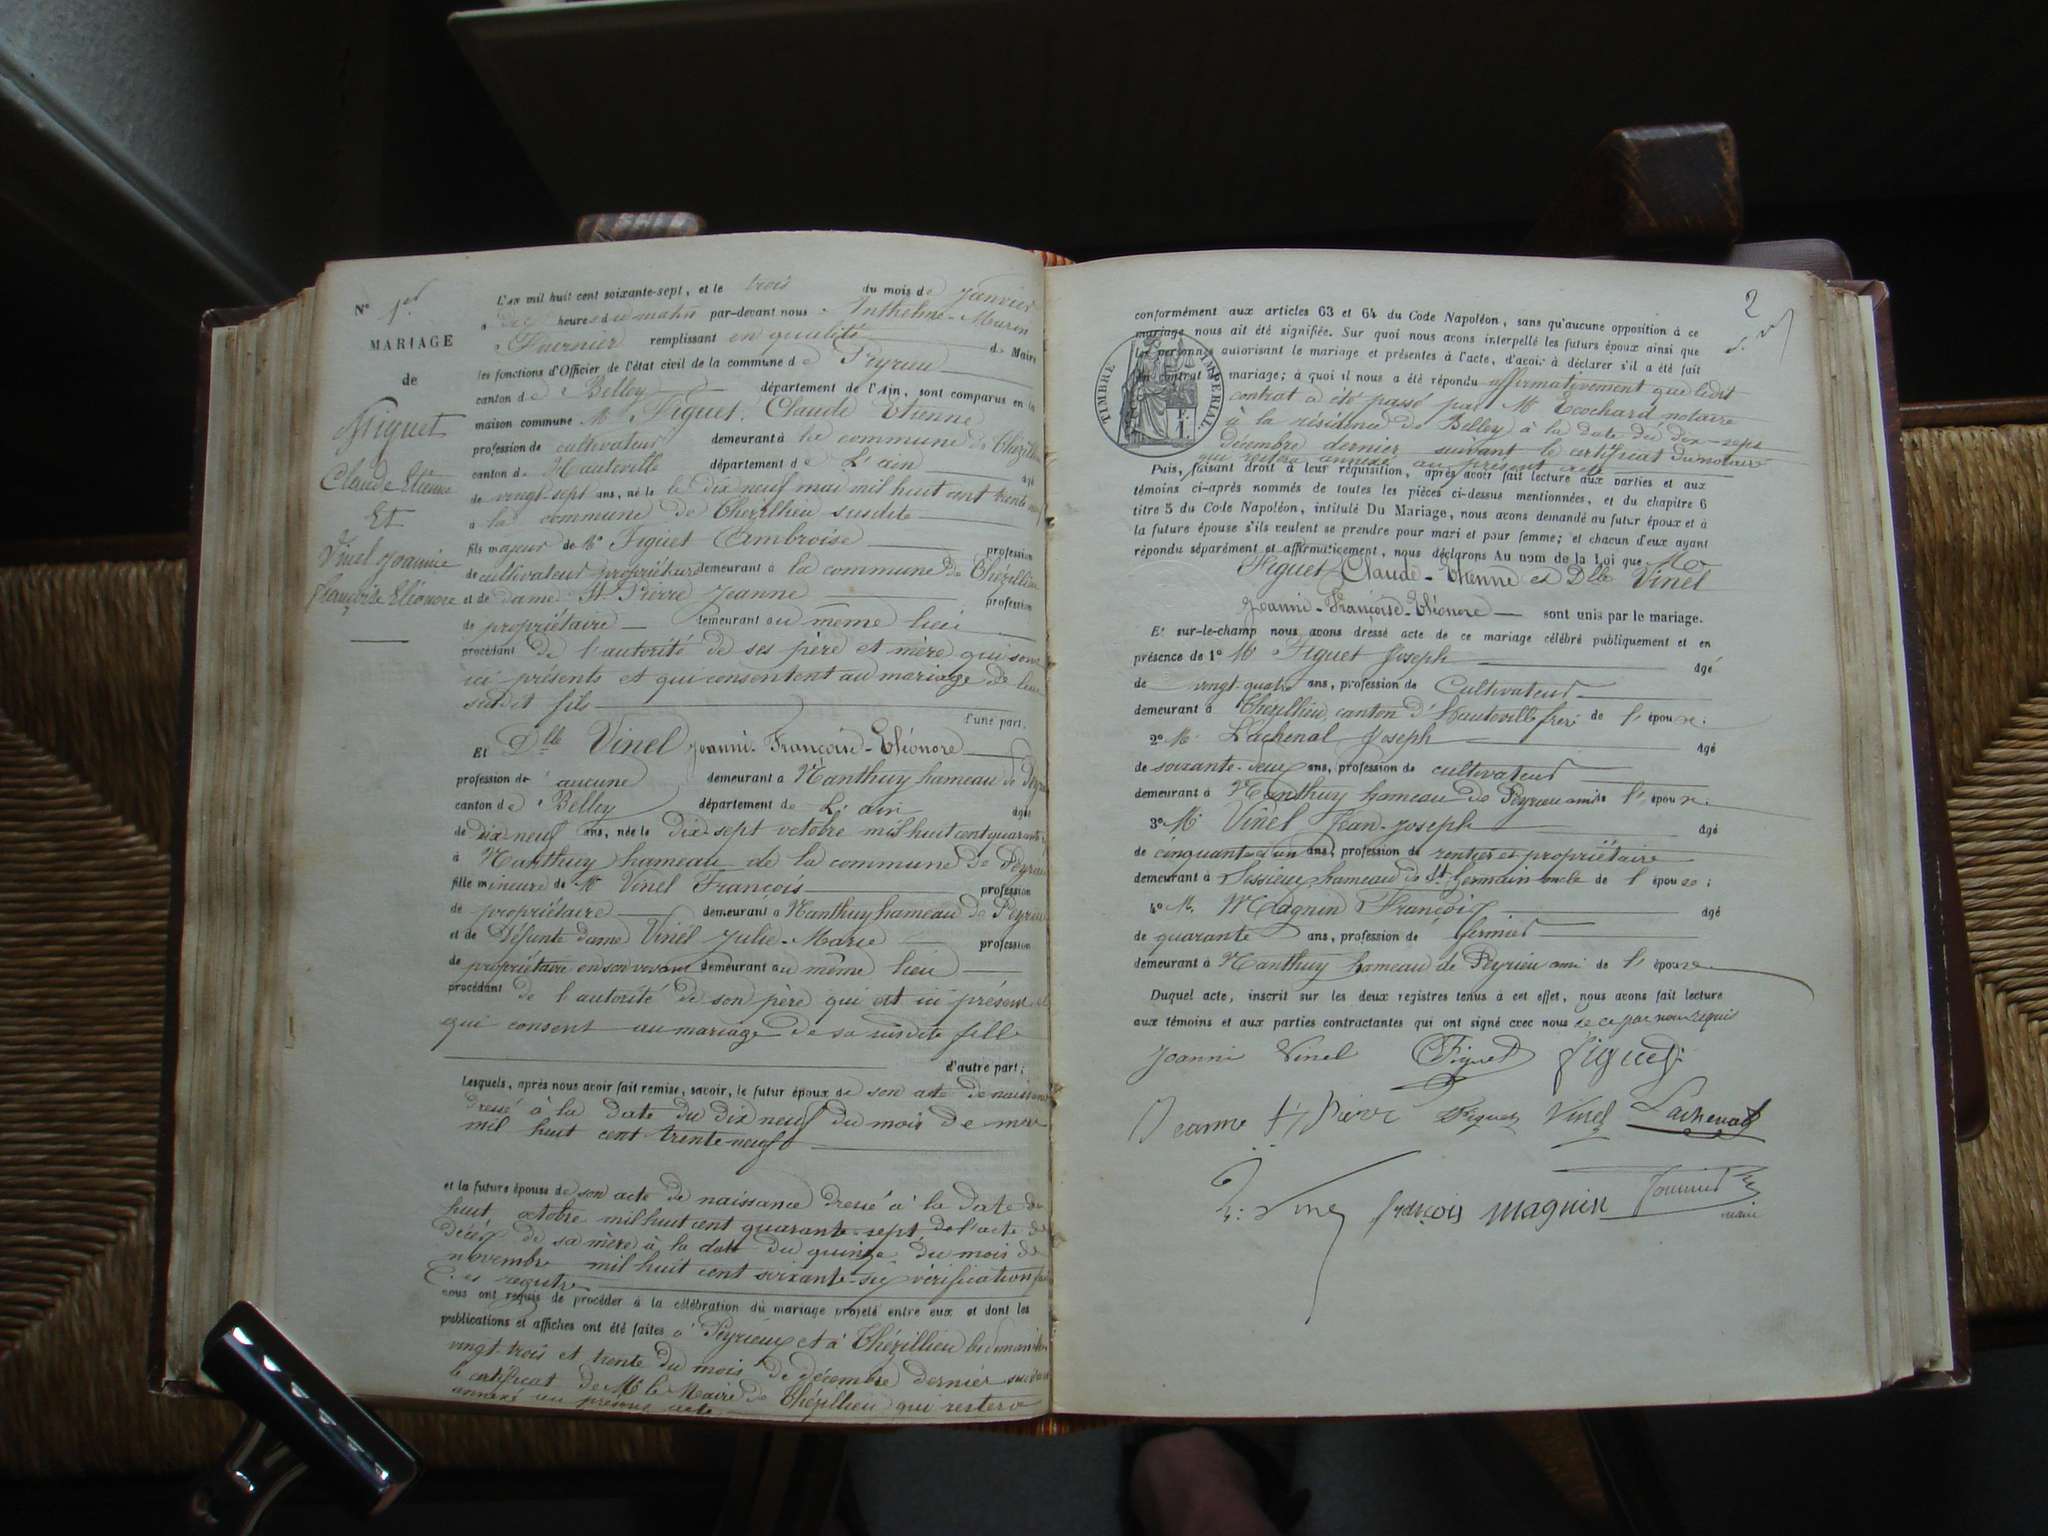 N° 1er
MARIAGE
de
Figuet
Claude Etienne
Et
Vinel Joannie
Françoise Eléonore
L'an mil huit cent soixante-sept, et le trois du mois de Janvier
à dix heures du matin par-devant nous Anthelme-Marin
Fournier remplissant en qualité de Maire
les fonctions d'Officier de l'état civil de la commune de Peyrieu
canton de Belley département de l'Ain, sont comparus en la
maison commune Mr Figuet, Claude Etienne
profession de cultivateur demeurant à la commune de Thézillieu
canton de Hauteville département de L'ain âgé
de vingt sept ans, né le le dix neuf mai mil huit cent trente neuf
à la commune de Thezillieu susdite
fils majeur de Mr Figuet Ambroise profession
de cultivateur propriétaire demeurant à la commune de Thézillieu
et de dame St Pierre Jeanne profession
de propriétaire demeurant au même lieu
procédant de l'autorité de ses père et mère qui sont
ici présents et qui consentent au mariage de leur
susdit fils
d'une part;
Et Dlle Vinel Joanni-Françoise-Eléonore
profession de aucune demeurant à Nanthuy hameau de Peyrieu
canton de Belley département de L'ain âgée
de dix neuf ans, née le dix-sept octobre mil huit cent quarante
à Nanthuy hameau de la commune de Peyrieu
fille mineure de Mr Vinel François profession
de propriétaire demeurant à Nanthuy hameau de Peyrieu
et de Défunte dame Vinel Julie-Marie profession
de propriétaire en son vivant demeurant au même lieu
procédant de l'autorité de son père qui est ici présent et
qui consent au mariage de sa susdite fille
d'autre part;
Lesquels, après nous avoir fait remise, savoir, le futur époux de son acte de naissance
dressé à la date du dix neuf du mois de mai
mil huit cent trente neuf
et la future épouse de son acte de naissance dressé à la date du
huit octobre mil huit cent quarante-sept, de l'acte de
décès de sa mère à la date du quinze du mois de
novembre mil huit cent soixante-six vérification
registre
nous ont requis de procéder à la célébration du mariage projeté entre eux et dont les
publications et affiches ont été faites à Peyrieu et à Thézillieu les dimanches
vingt-trois et trente du mois de décembre dernier suivant
le certificat de Mr le Maire de Thézillieu qui restera
annexé au présent acte
2
conformément aux articles 63 et 64 du Code Napoléon, sans qu'aucune opposition à ce
mariage nous ait été signifiée. Sur quoi nous avons interpellé les futurs époux ainsi que
les personnes autorisant le mariage et présentes à l'acte, d'avoir à déclarer s'il a été fait
un contrat de mariage; à quoi il nous a été répondu affirmativement que ledit
contrat a été passé par Mr Ecochard notaire
à la résidence de Belley à la date du dix-sept
décembre dernier suivant le certificat du notaire
qui restera annexé au présent acte
TIMBRE IMPERIAL
Puis, faisant droit à leur réquisition, après avoir fait lecture aux parties et aux
témoins ci-après nommés de toutes les pièces ci-dessus mentionnées, et du chapitre 6
titre 5 du Code Napoléon, intitulé Du Mariage, nous avons demandé au futur époux et à
la future épouse s'ils veulent se prendre pour mari et pour femme; et chacun d'eux ayant
répondu séparément et affirmativement, nous déclarons Au nom de la Loi que Mr
Figuet Claude-Etienne et Dlle Vinel
Joanni-Françoise-Eléonore sont unis par le mariage.
Et sur-le-champ nous avons dressé acte de ce mariage célébré publiquement et en
présence de 1° Mr Figuet Joseph âgé
de vingt-quatre ans, profession de Cultivateur
demeurant à Thezillieu, canton d'Hauteville frère de l'époux;
2° M. Lachenal Joseph âgé
de soixante-deux ans, profession de cultivateur
demeurant à Nanthuy hameau de Peyrieu ami de l'époux;
3° Mr Vinel Jean-Joseph âgé
de cinquante et un ans, profession de rentier et propriétaire
demeurant à Sessieux hameau de St Germain oncle de l'épouse;
4° M. Magnin François âgé
de quarante ans, profession de fermier
demeurant à Nanthuy hameau de Peyrieu ami de l'épouse
Duquel acte, inscrit sur les deux registres tenus à cet effet, nous avons fait lecture
aux témoins et aux parties contractantes qui ont signé avec nous de ce par nous requis
Joanni Vinel Figuet Figuet
Jeanne St Pierre Figuet Vinel Lachenal
Vinel françois magnin Fournier
maire